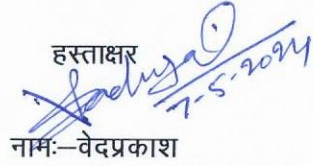 हस्ताक्षर
7-5-2024
नामः—वेदप्रकाश